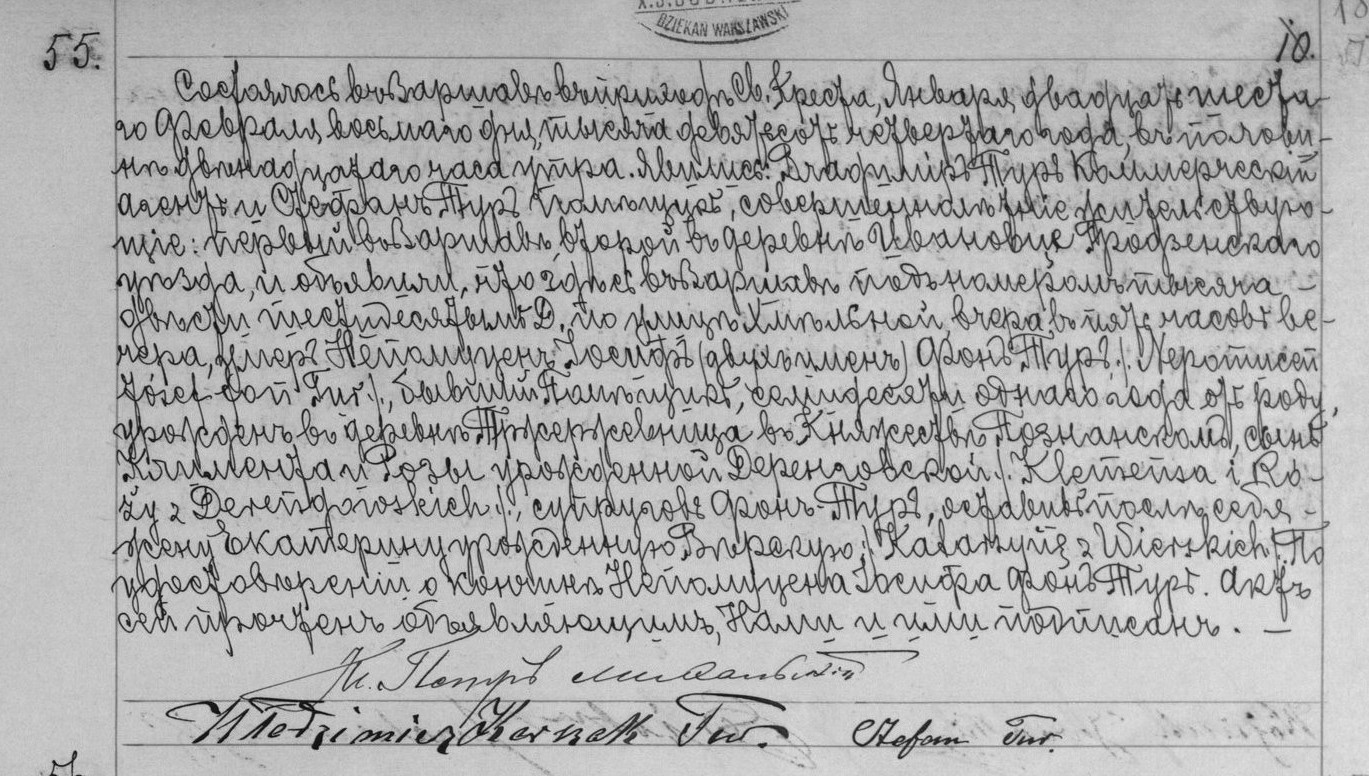 DZIEKAN WARSZAWSKI
55.
10.
Состоялось въ Варшавѣ въ приходѣ Св. Креста, Января двадцать шеста-
го Февраля восьмаго дня, тысяча девятьсотъ четвертаго года, въ полови-
нѣ двѣнадцатаго часа утра. Явились: Владиміръ Туръ Коммерческій
агентъ и Стефанъ Туръ помѣщикъ, совершеннолѣтніе жительствую-
щіе: первый въ Варшавѣ, второй въ деревнѣ Ивановце Гродзенскаго
уѣзда, и объявили, что здѣсь въ Варшавѣ подъ номеромъ тысяча
двѣсти шестидесятымъ Д. по улицѣ Хмѣльной, вчера, въ пять часовъ ве-
чера, умеръ Непомуценъ Іосифъ (двухъ именъ) фонъ Туръ /. Nepomucen
Józef von Tur ./, бывшій Помѣщикъ, семидесяти однаго года отъ роду,
урожденъ въ деревнѣ въ Княжествѣ Познанскомъ, сынъ
Климента и Розы урожденной Деренговской /. Klemensa i Ro-
zy z Derengowskich ./, супруговъ фонъ Туръ, оставивъ послѣ себя
жену Екатерину урожденную Вѣрскую /. Katarzynę z Wierskich. По
удостовѣреніи о кончинѣ Непомуцена Іосифа фонъ Туръ. Актъ
сей прочтенъ объявляющимъ, Нами и ими подписанъ. —
Кс. Петръ
Włodzimierz Korsak Tur. Stefan Tur.
56